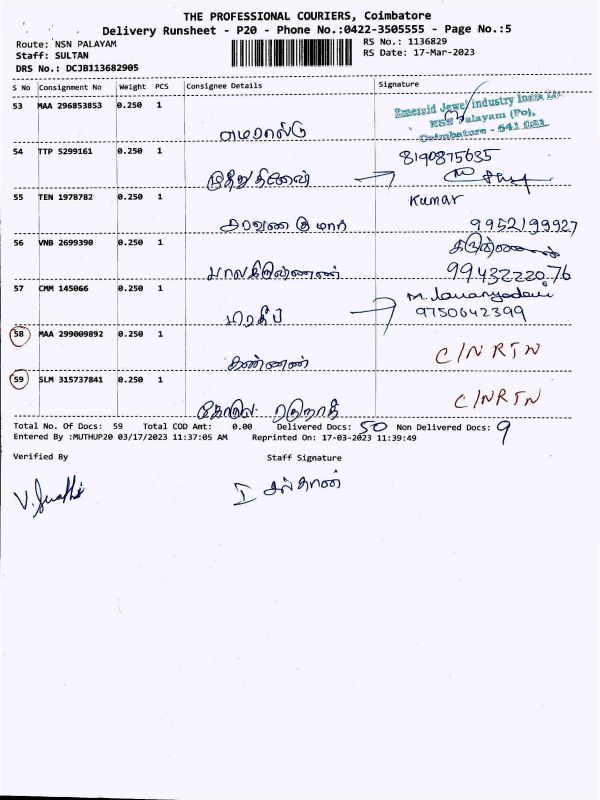 THE PROFESSIONAL COURIERS, Coimbatore
Delivery Runsheet - P20 - Phone No.:0422-3505555 - Page No.:5
Route: NSN PALAYAM RS No.: 1136829
Staff: SULTAN RS Date: 17-Mar-2023
DRS No.: DCJB113682905
S No Consignment No Weight PCS Consignee Details Signature
53 MAA 296853853 0.250 1
Emerald Jewel Industry India Ltd
NSN Palayam (Po),
Coimbatore - 641 031.
எமரால்டு
54 TTP 5299161 0.250 1 8190875635
முத்து
55 TEN 1978782 0.250 1 Kumar
சரவண குமார் 9952199927
56 VNB 2699390 0.250 1
பாலகிருஷ்ணன் 9943222076
57 CMM 145066 0.250 1 M. Lavanyadevi
பிரதீப் 9750642399
58 MAA 299009892 0.250 1
கண்ணன் C/N RTN
59 SLM 315737841 0.250 1
C/N RTN
Total No. Of Docs: 59 Total COD Amt: 0.00 Delivered Docs: 50 Non Delivered Docs: 9
Entered By :MUTHUP20 03/17/2023 11:37:05 AM Reprinted On: 17-03-2023 11:39:49
Verified By Staff Signature